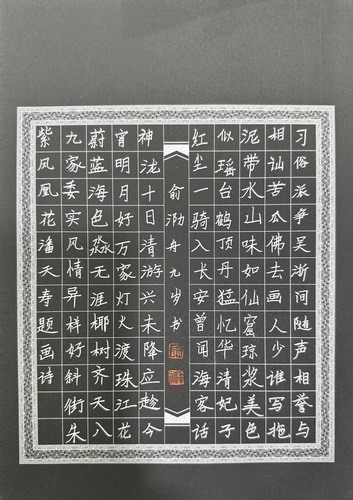 习俗派争吴浙间随声相誉与
相讪苦瓜佛去画人少谁写拖
泥带水山味如仙窟琼浆美色
似瑶台鹤顶丹猛忆华清妃子
红尘一骑入长安曾闻海客话
俞泐舟九岁书
神泷十日清游兴未降应趁今
宵明月好万家灯火渡珠江花
蔚蓝海色淼无涯椰树齐天八
九家委实风情异样好斜街朱
紫凤凰花潘天寿题画诗